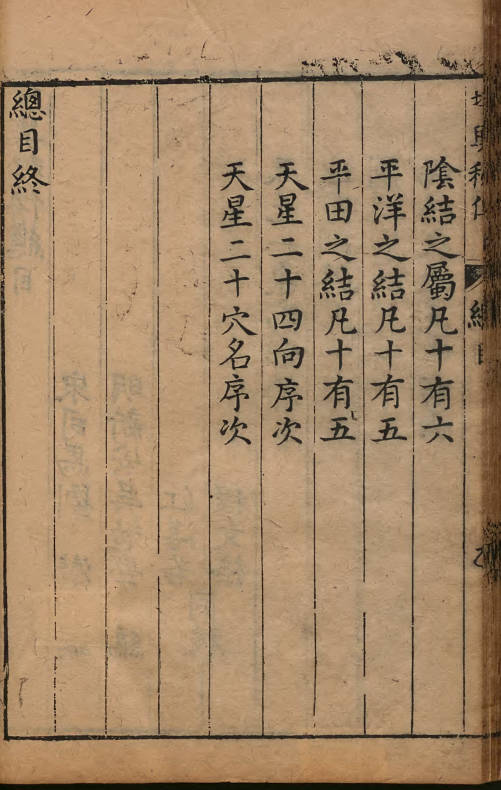 總目
陰結之屬凡十有六
平洋之結凡十有五
平田之結凡十有五
天星二十四向序次
天星二十穴名序次
總目終